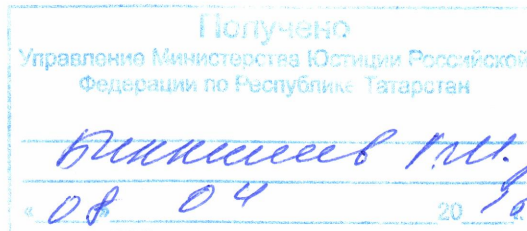 Получено
Управление Министерства Юстиции Российской
Федерации по Республике Татарстан
Г.И.
« 08 » 04 20 16